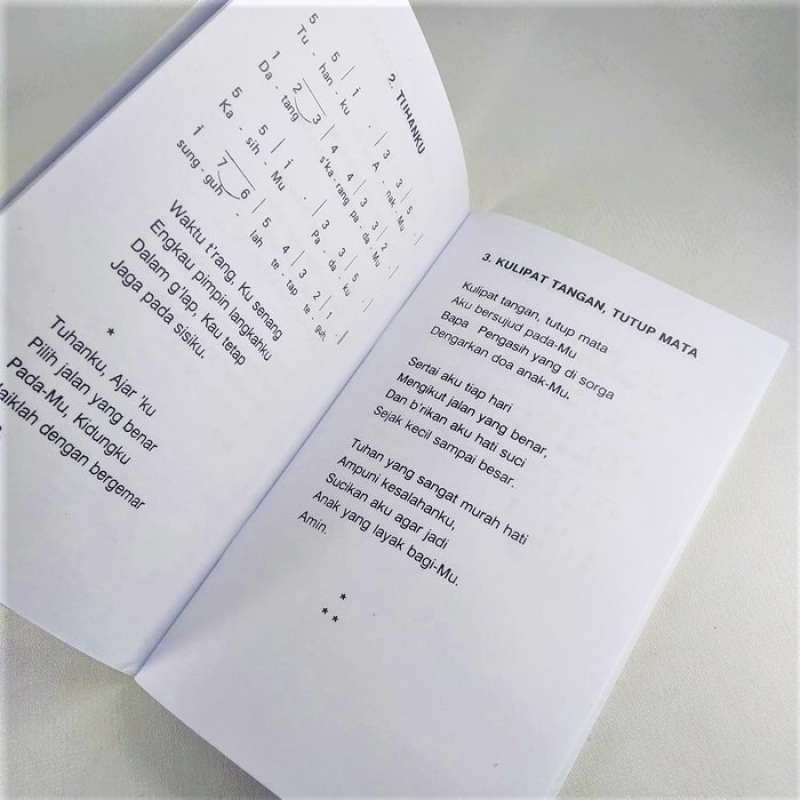 2. TUHANKU
5 5 | i . | 3 3 | 5 . |
Tu - han - ku . A - nak - Mu
1 2 3 | 4 4 | 3 3 | 2 . |
Da - tang s'ka - rang pa - da - Mu
5 5 | i . | 3 3 | 5 . |
Ka - sih - Mu . Pa - da - ku
i 7 6 | 5 4 | 3 2 | 1 . |
sung - guh - lah te - tap te - guh,
Waktu t'rang, Ku senang
Engkau pimpin langkahku
Dalam g'lap, Kau tetap
Jaga pada sisiku.
*
Tuhanku, Ajar 'ku
Pilih jalan yang benar
Pada-Mu, Kidungku
dengan bergemar
3. KULIPAT TANGAN, TUTUP MATA
Kulipat tangan, tutup mata
Aku bersujud pada-Mu
Bapa Pengasih yang di sorga
Dengarkan doa anak-Mu.
Sertai aku tiap hari
Mengikut jalan yang benar,
Dan b'rikan aku hati suci
Sejak kecil sampai besar.
Tuhan yang sangat murah hati
Ampuni kesalahanku,
Sucikan aku agar jadi
Anak yang layak bagi-Mu.
Amin.
*
* *